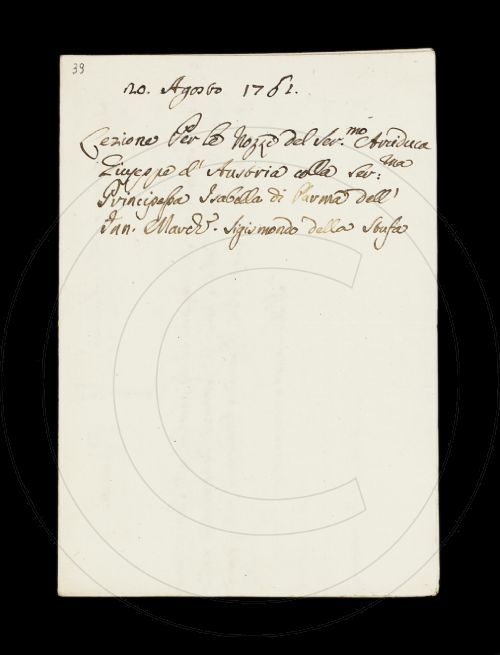 39
20. Agosto 1761.
Lezione Per le Nozze del Ser.mo Arciduca
Giuseppe d' Austria colla Ser:ma
Principessa Isabella di Parma dell'
Sen. March.e Sigismondo della Stufa
C